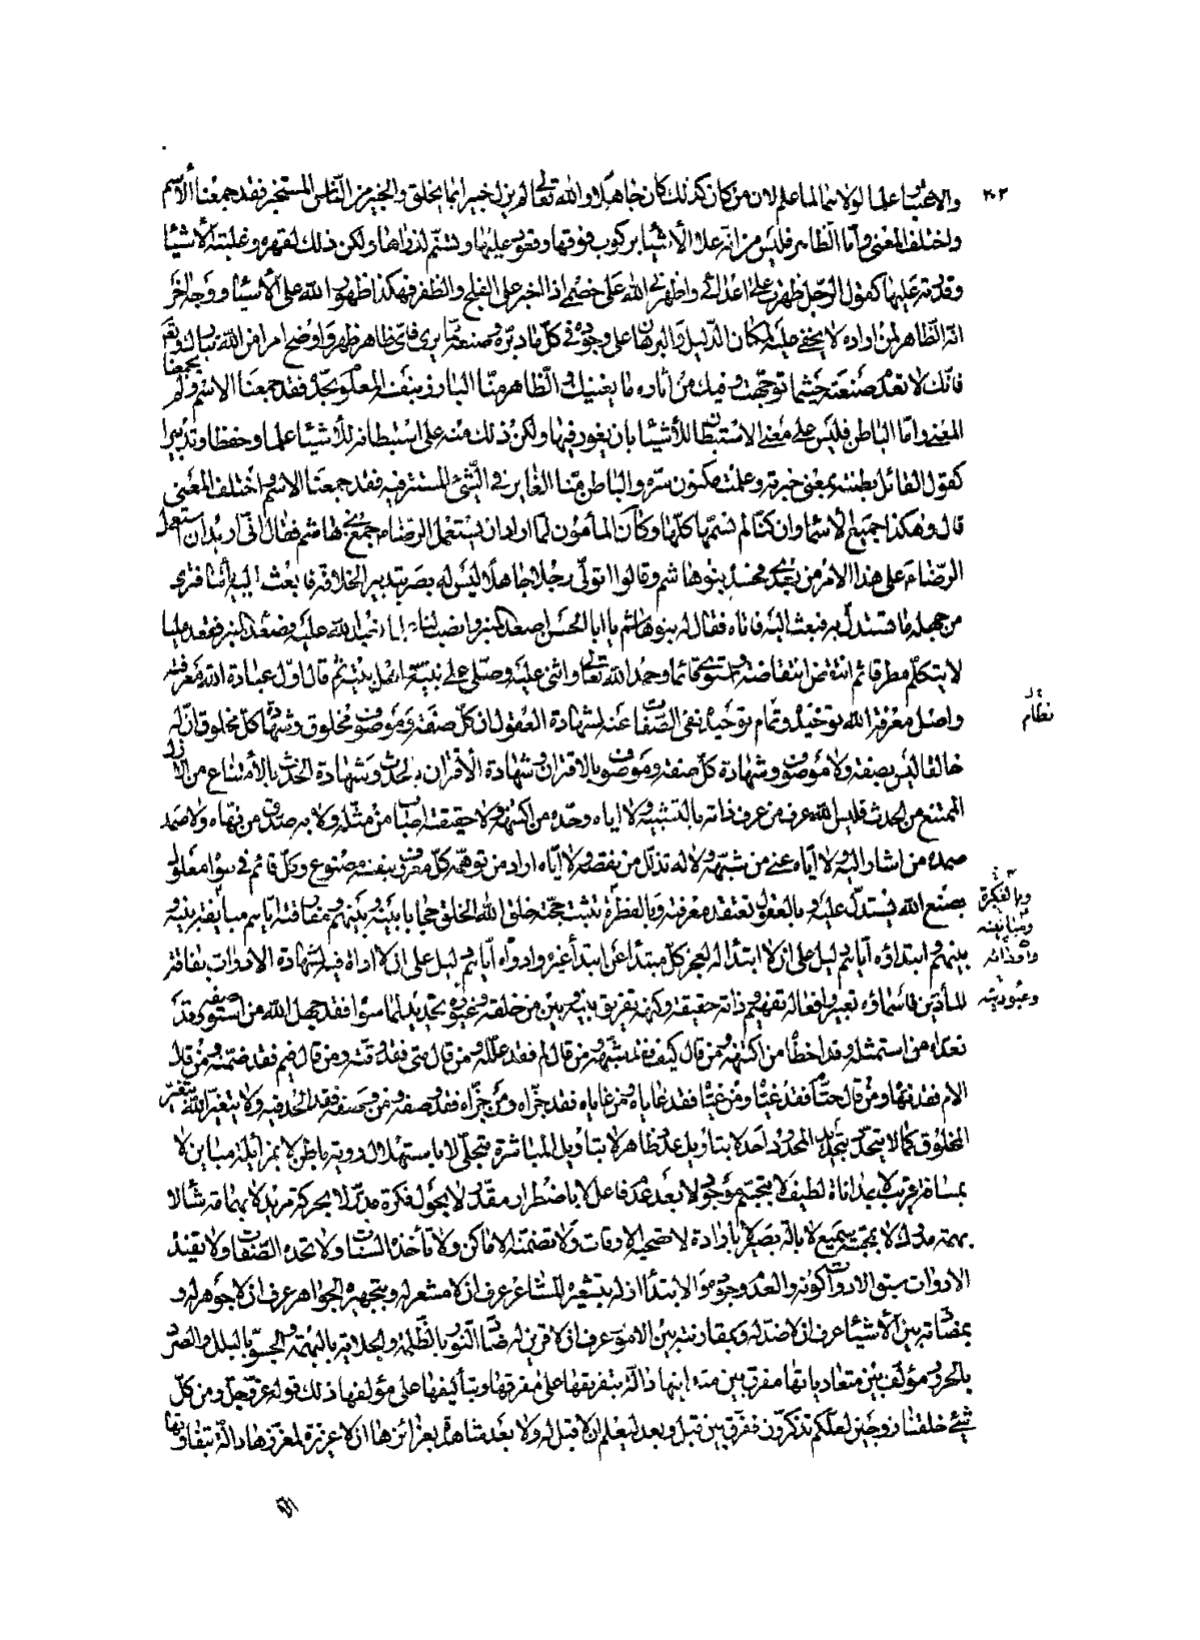 ٣٠٣
والاعتبار علما لولاهما لما علم لان من كان كذلك كان جاهلا والله تعالى لم يزل خبيرا بما يخلق والخبير من الناس المستخبر فقد جمعنا الاسم
واختلف المعنى واما الظاهر فليس من انه علا الأشياء بركوب فوقها وقعود عليها وتسنم لذراها ولكن ذلك لقهره وغلبته الأشياء
وقدرته عليها كقول الرجل ظهرت على اعدائي واظهرني الله على خصمي اذا اخبر على الفلج والظفر فهكذا ظهور الله على الأشياء ووجه اخر
انه الظاهر لمن اراده لا يخفى عليه لمكان الدليل والبرهان على وجوده في كل ما دبره وصنعه مما يرى فاي ظاهر ظهر واوضح امرا من الله تبارك وتعالى
فانك لا تعدم صنعته حيثما توجهت وفيك من آثاره ما يغنيك والظاهر منا البارز بنفسه المعلوم بحده فقد جمعنا الاسم ولم يجمعنا
المعنى واما الباطن فليس على معنى الاستبطان للأشياء بان يغور فيها ولكن ذلك منه على استبطانه للأشياء علما وحفظا وتدبيرا
كقول القائل ابطنته بمعنى خبرته وعلمت مكنون سره والباطن منا الغاير في الشيء المستتر فيه فقد جمعنا الاسم واختلف المعنى
قال وهكذا جميع الأسماء وان كنا لم نسمها كلها وكان المأمون لما اراد ان يستعمل الرضاء جمع بني هاشم فقال اني اريد ان استعمل
الرضاء على هذا الامر من بعدي فحسده بنو هاشم وقالوا اتولي رجلا جاهلا ليس له بصر بتدبير الخلافة فابعث اليه يأتنا فترى
من جهله ما تستدل به فبعث اليه فاتاه فقال له بنو هاشم يا ابا الحسن اصعد المنبر وانصب لنا علما نعبد الله عليه فصعد المنبر فقعد مليا
لا يتكلم مطرقا ثم انتفض انتفاضة واستوى قائما وحمد الله تعالى واثنى عليه وصلى على نبيه واهل بيته ثم قال اول عبادة الله معرفته
واصل معرفة الله توحيده وتمام توحيده نفى الصفات عنه لشهادة العقول ان كل صفة وموصوف مخلوق وشهادة كل مخلوق ان له
نظام
خالقا ليس بصفة ولا موصوف وشهادة كل صفة وموصوف بالاقتران وشهادة الأقتران بالحدث وشهادة الحدث بالأمتناع من الأزل
الممتنع من الحدث فليس الله عرف من عرف ذاته بالتشبيه ولا اياه وحده من اكتنهه ولا حقيقته اصاب من مثله ولا به صدق من نهاه ولا صمد
صمده من اشار اليه ولا اياه عنى من شبهه ولا له تذلل من بعضه ولا اياه اراد من توهمه كل معروف بنفسه مصنوع وكل قائم في سواه معلول
بصنع الله يستدل عليه وبالعقول تعتقد معرفته وبالفطرة تثبت حجته خلق الله الخلق حجابا بينه وبينهم ومفارقته اياهم مباينة بينه و
وبالفكرة
ومباينته
بينهم وابتداؤه اياهم دليل على ان لا ابتداء له لعجز كل مبتدا عن ابتدأ غيره وادواه اياهم دليل على ان لا اداة فيه لشهادة الادوات بفاقة
للمأدين فاسماؤه تعبير وافعاله تفهيم وذاته حقيقة وكنهه تفريق بينه وبين خلقه وغيوره تحديد لما سواه فقد جهل الله من استوصفه وقد
تعداه من استمثله وقد اخطأ من اكتنهه ومن قال كيف فقد شبهه ومن قال لم فقد علله ومن قال متى فقد وقته ومن قال فيم فقد ضمنه ومن قال
الام فقد نهاه ومن قال حتام فقد غياه ومن غياه فقد غاياه ومن غاياه فقد جزاه ومن جزاه فقد وصفه ومن وصفه فقد الحد فيه ولا يتغير الله بتغير
المخلوق كما لا يتحدد بتحديد المحدود احد لا بتأويل عدد ظاهر لا بتأويل المباشرة متجلى لا باستهلال رؤية باطن لا بمزايلة مباين لا
بمسافة قريب لا بمداناة لطيف لا بتجسم موجود لا بعد عدم فاعل لا باضطرار مقدر لا بجول فكرة مدبر لا بحركة مريد لا بهمامة شاء لا
بهمة مدرك لا بمجسة سميع لا بآلة بصير لا باداة لا تصحبه الاوقات ولا تضمنه الاماكن ولا تأخذه السنات ولا تحده الصفات ولا يقيده
الادوات سبق الاوقات كونه والعدم وجوده والابتدأ ازله بتشعيره المشاعر عرف ان لا مشعر له وبتجهيره الجواهر عرف ان لا جوهر له و
بمضادته بين الأشياء عرف ان لا ضد له وبمقارنته بين الامور عرف ان لا قرين له ضاد النور بالظلمة والجلاية بالبهمة والجسو بالبلل والصرد
بالحرور مؤلف بين متعادياتها مفرق بين متدانياتها دالة بتفريقها على مفرقها وبتأليفها على مؤلفها ذلك قوله عز وجل ومن كل
شيء خلقنا زوجين لعلكم تذكرون ففرق بين قبل وبعد ليعلم ان لا قبل له ولا بعد شاهدة بغرائزها ان لا غريزة لمغرزها دالة بتفاوتها